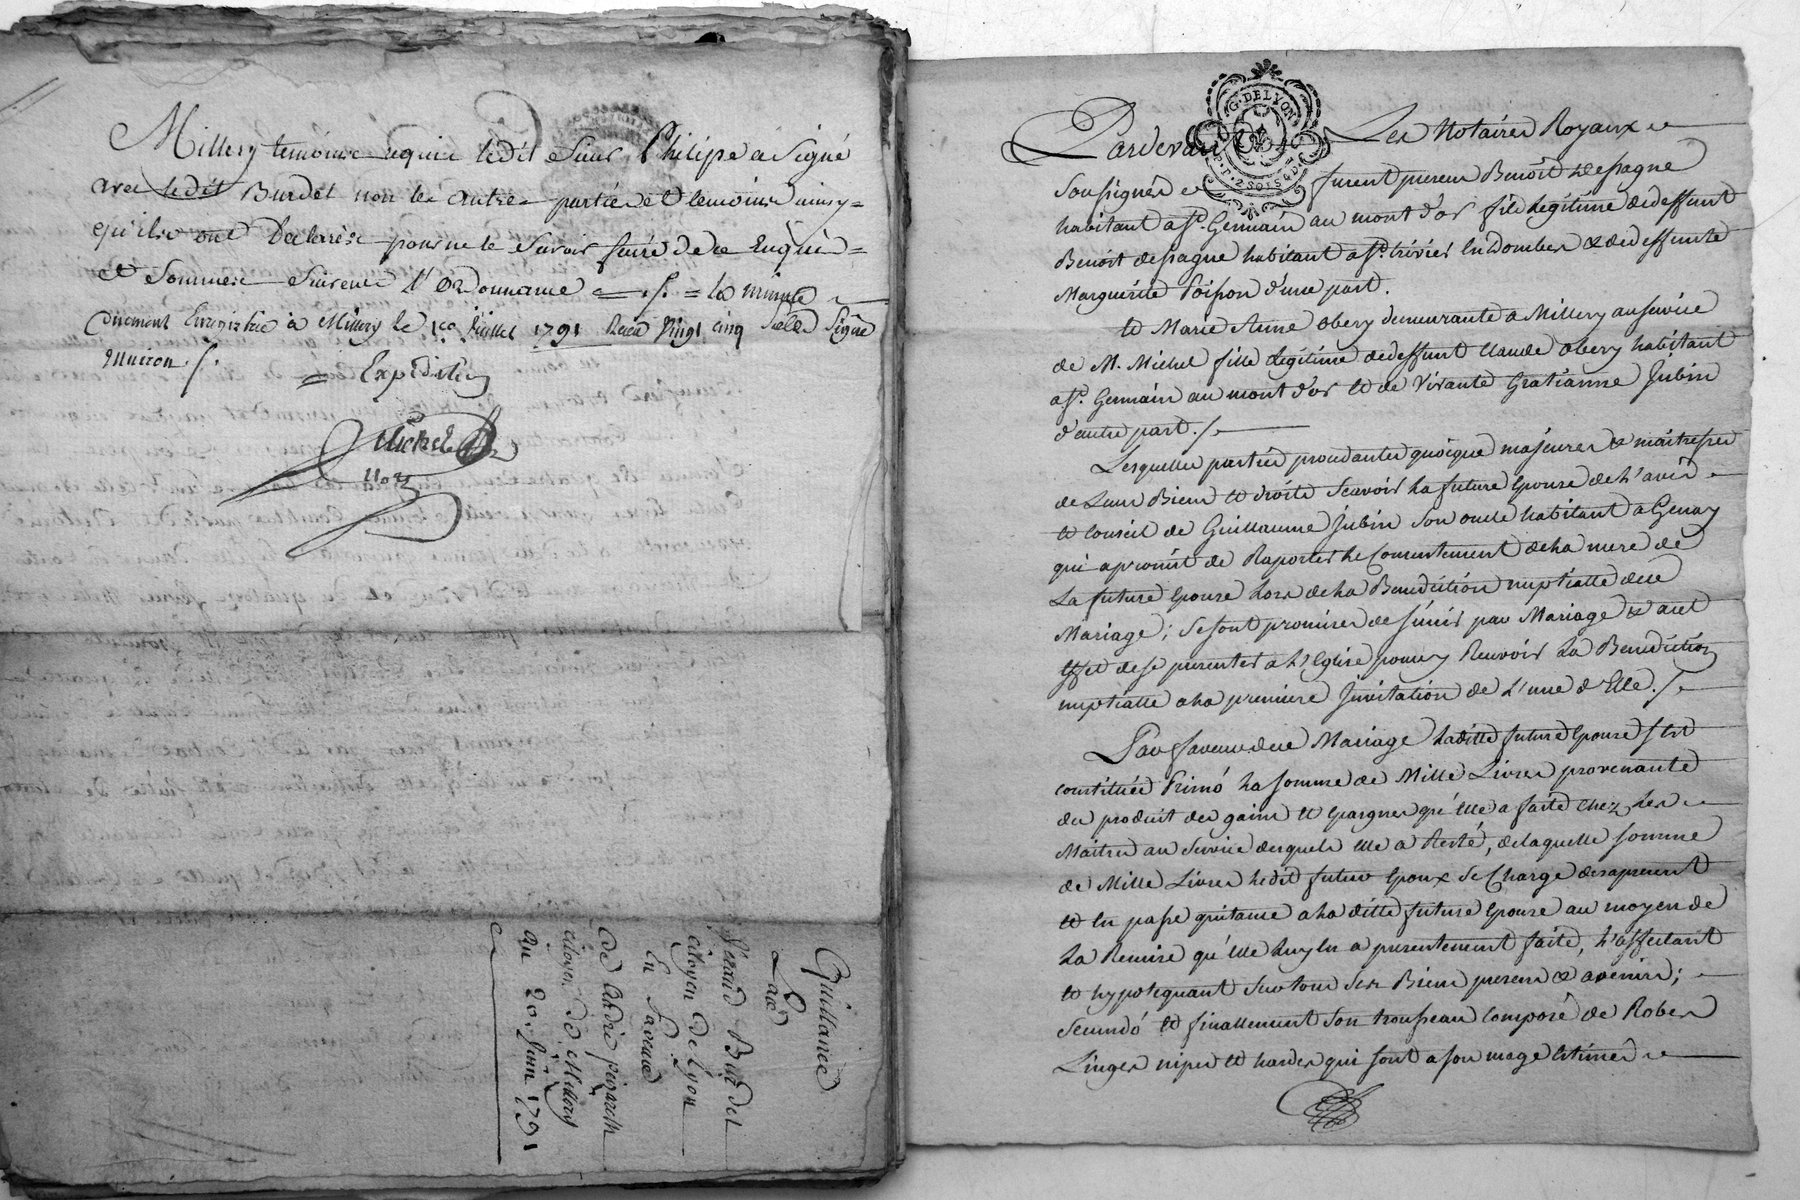 Millery temoins requis ledit Sieur Philipe a signé
avec ledit Burdet non les autres parties et temoins ainsy
qu'ils ont Declarés pour ne le savoir faire de ce Enquis
et Sommés suivant l'ordonnance ./. la minutte
Duement Enregistrée à Millery le 1er Juillet 1791 Reçu vingt cinq sols Signé
Muiron ./.
= Expedition
Michel
Nore
Quittance
Par
Sieur Burdet
citoyen de Lyon
En Faveur
De André pizareth
citoyen de Millery
du 20. Juin 1791
G. DE LYON
2 SOLS
Pardevant Les Notaires Royaux
Soussignés furent presens Benoît Despagne
habitant a St. Germain au mont d'or fils legitime de deffunt
Benoit despagne habitant a St. trivier En Dombes & de deffunte
Marguerite Poisson d'une part.
et Marie Anne obery demeurante a Millery au service
de M. Michel fille legitime de deffunt Claude obery habitant
a St. Germain au mont d'or et de vivante Gratianne Jubin
d'autre part ./.
Lesquelles parties procedantes quoique majeures & maitresses
de Leurs Biens et droits scavoir la future Epouse de L'avis
et Conseil de Guillaume Jubin son oncle habitant a Genay
qui a promis de Raporter le Consentement de la mere de
La future Epouse lors de la Benediction nuptialle de ce
Mariage; se sont promises de s'unir par Mariage & a cet
effet de se presenter a L'Eglise pour y Recevoir La Benediction
nuptialle a la premiere Invitation de L'une d'Elle ./.
En faveur de ce Mariage Laditte future Epouse s'est
constituée Primó La somme de Mille Livres provenante
du produit des gains et Epargnes qu'Elle a faite chez Les
Maitres au Service desquels Elle a Resté, de laquelle somme
de Mille Livres ledit futur Epoux se Charge des apresent
et En passe quitance a la ditte future Epouse au moyen de
La Remise qu'Elle luy En a presentement faite, L'affectant
et hypotequant sur tous ses Biens presens & avenirs;
Secundó et finallement son trousseau Composé de Robes
Linges nipes et hardes qui sont a son usage Estimés